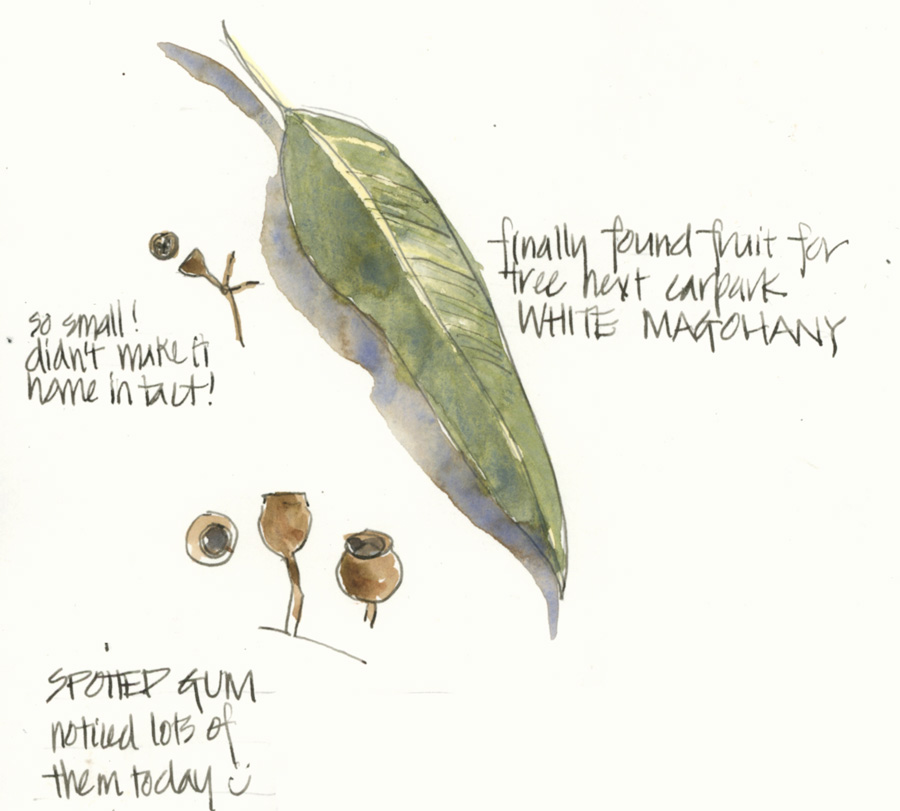 finally found fruit for
tree next carpark
WHITE MAGOHANY
so small!
didn't make it
home in tact!
SPOTTED GUM
noticed lots of
them today :)